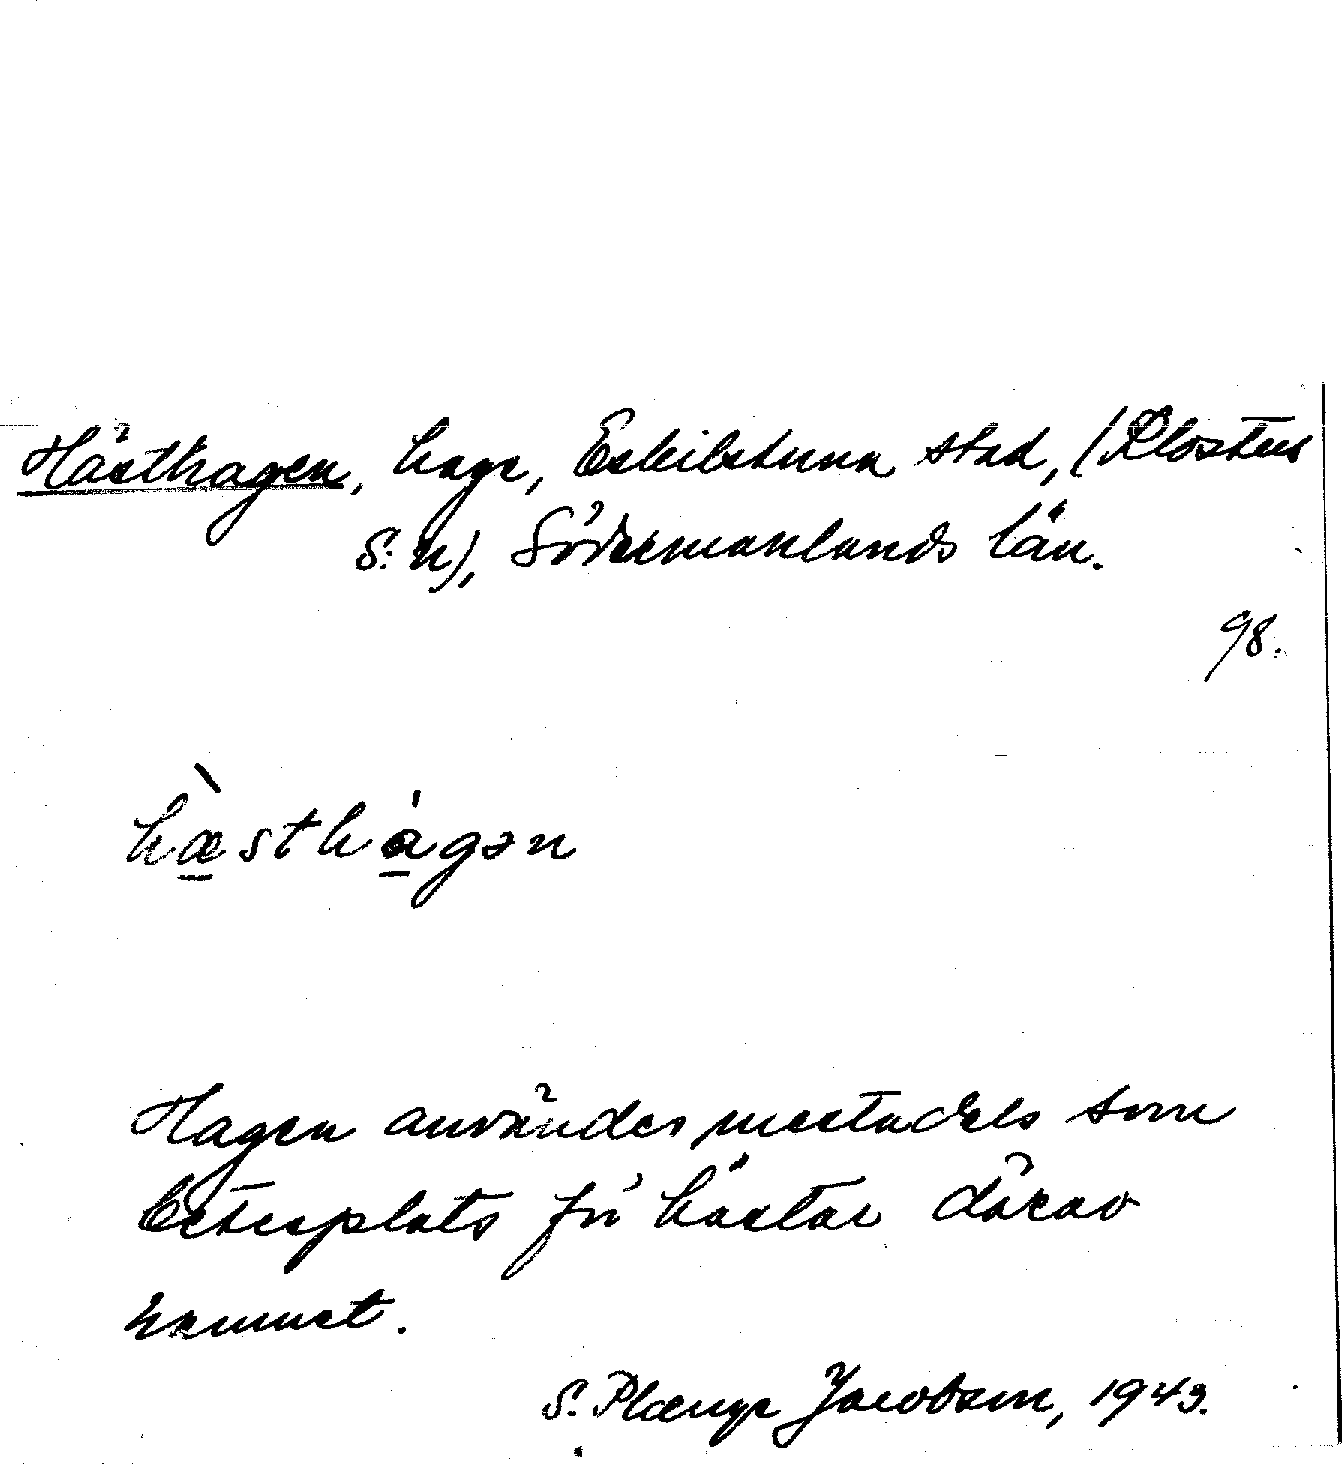 Hästhagen, hage, Eskilstuna stad, (Klosters
S:n), Södermanlands län.
98.
hæ̀sthágən
Hagen användes mestadels som
betesplats för hästar därav
namnet.
S. Plænge Jacobson, 1943.